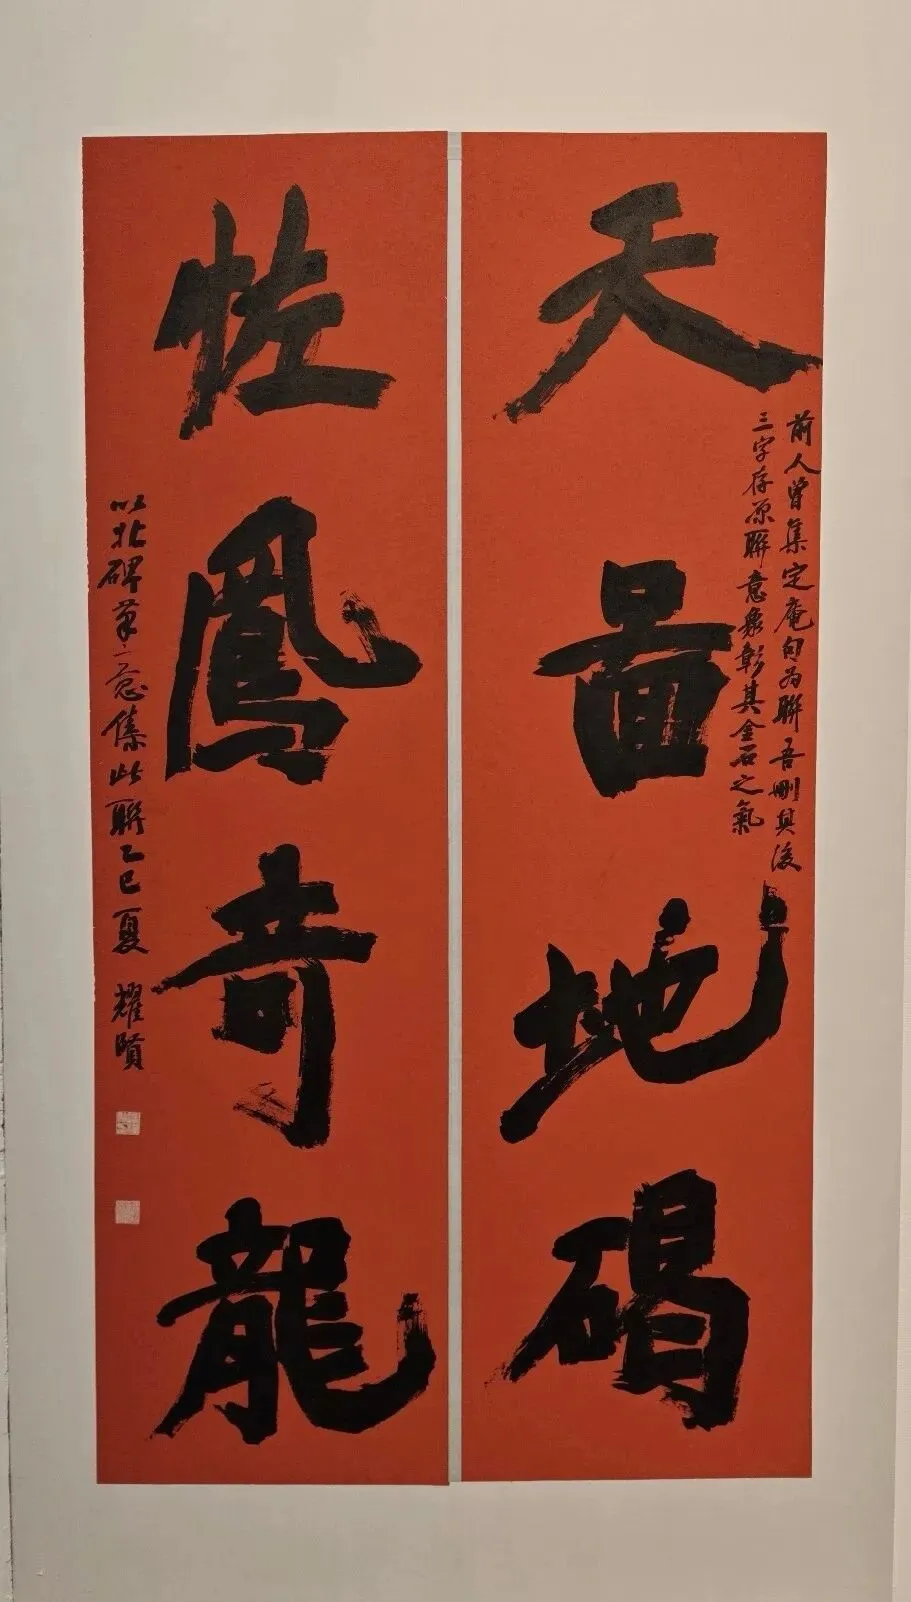 天啚地碣
前人曾集定庵句为聯吾刪其後
三字存原聯意象彰其金石之氣
恠鳳竒龍
以北碑筆之意集此聯乙巳夏 耀賢